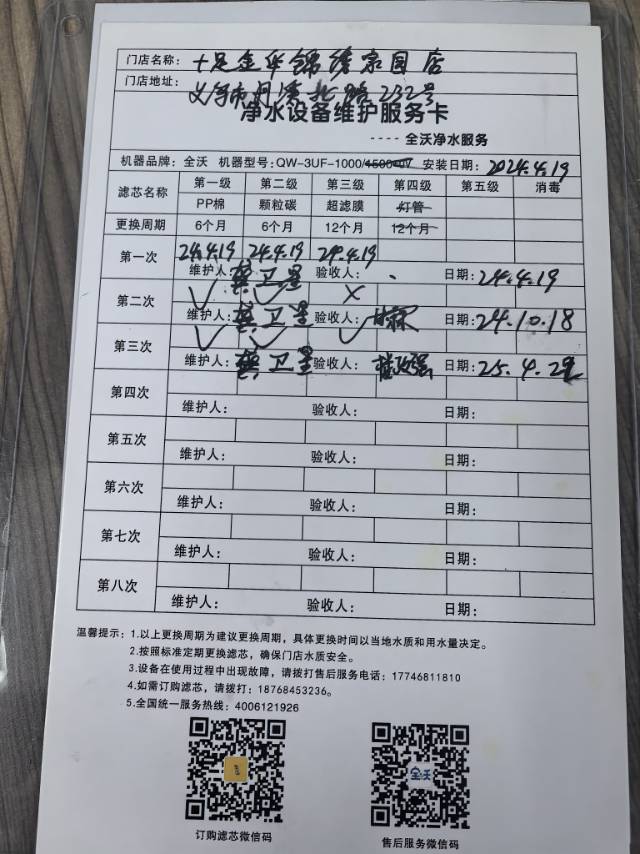 门店名称：十足金华锦绣家园店
门店地址：义乌市丹溪北路232号
净水设备维护服务卡
---- 全沃净水服务
机器品牌：全沃 机器型号：QW-3UF-1000/1500-UV 安装日期：2024.4.19
滤芯名称 第一级 第二级 第三级 第四级 第五级 消毒
PP棉 颗粒碳 超滤膜 灯管
更换周期 6个月 6个月 12个月 12个月
第一次 24.4.19 24.4.19 24.4.19
维护人： 卫星 验收人： 日期：24.4.19
第二次 ✓ ✓ ✗
维护人： 卫星 验收人： 日期：24.10.18
第三次 ✓ ✓ ✓
维护人： 卫星 验收人： 日期：25.4.29
第四次
维护人： 验收人： 日期：
第五次
维护人： 验收人： 日期：
第六次
维护人： 验收人： 日期：
第七次
维护人： 验收人： 日期：
第八次
维护人： 验收人： 日期：
温馨提示：1.以上更换周期为建议更换周期，具体更换时间以当地水质和用水量决定。
2.按照标准定期更换滤芯，确保门店水质安全。
3.设备在使用过程中出现故障，请拨打售后服务电话：17746811810
4.如需订购滤芯，请拨打：18768453236。
5.全国统一服务热线：4006121926
全沃
订购滤芯微信码 售后服务微信码